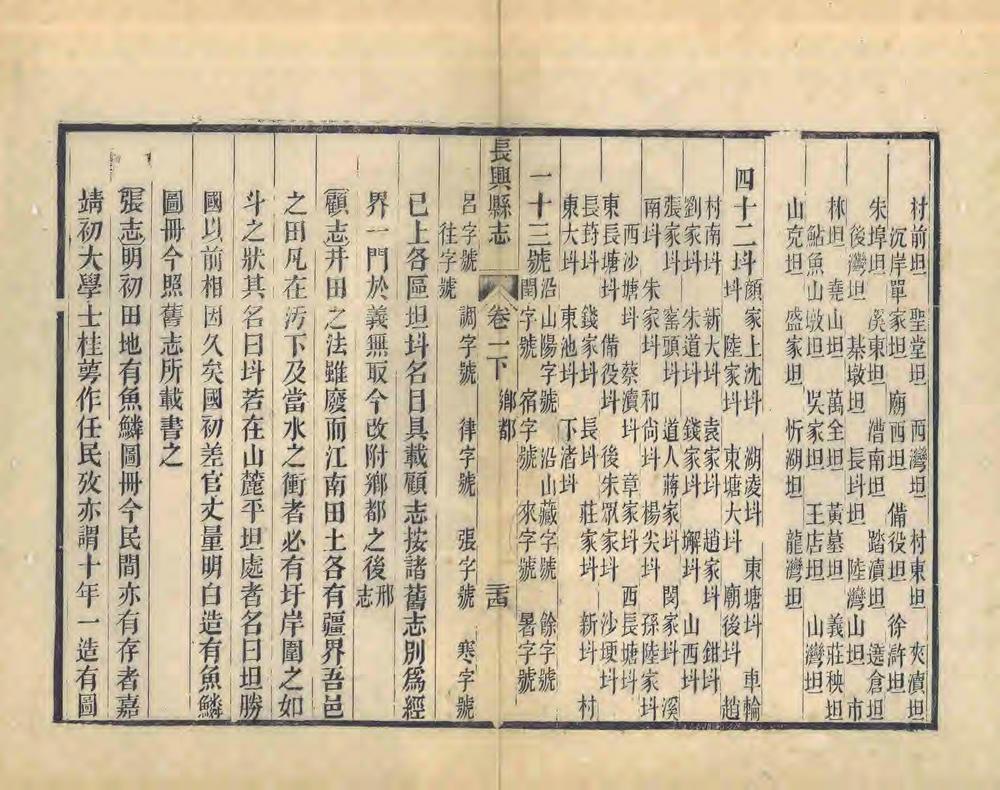 村前坦　聖堂坦　西灣坦　村東坦　夾瀆坦
沉岸單家坦　廟西坦　備役坦　徐滸坦
朱埠坦　溪東坦　漕南坦　踏瀆坦　邉倉坦
後灣坦　碁墩坦　長圲坦　陸灣山坦　市
林坦　堯山坦　萬全坦　黃墓坦　義莊秧坦
鮎魚山墩坦　吳家坦　王店坦　山灣坦
山克坦　盛家坦　忻湖坦　龍灣坦
四十二圲
顏家上沈圲　湖凌圲　東塘圲　車輪
圲　陸家圲　東塘大圲　廟後圲　趙
村南圲　新大圲　袁家圲　趙家圲　鉗圲
劉家圲　朱道圲　錢家圲　懈圲　山西圲
張家圲　窰頭圲　道人蔣家圲　閔家圲　溪
南圲　朱家圲　和尚圲　楊尖圲　孫陸家圲
西沙塘圲　蔡瀆圲　章家圲　西長塘圲
東長塘圲　備役圲　後朱眾家圲　沙埂圲
長葑圲　錢家圲　長圲　莊家圲　新圲　村
東大圲　東池圲　下渚圲
一十三號
沿山陽字號　沿山藏字號　餘字號
閏字號　宿字號　來字號　暑字號
長興縣志　卷一下　鄉都　三十四
呂字號　調字號　律字號　張字號　寒字號
往字號
已上各區坦圲名目具載顧志按諸舊志別爲經
界一門於義無取今改附鄉都之後邢志
顧志井田之法雖廢而江南田土各有疆界吾邑
之田凡在汚下及當水之衝者必有圩岸圍之如
斗之狀其名曰圲若在山麓平坦處者名曰坦勝
國以前相因久矣國初差官丈量明白造有魚鱗
圖冊今照舊志所載書之
張志明初田地有魚鱗圖冊今民間亦有存者嘉
靖初大學士桂萼作任民攷亦謂十年一造有圖